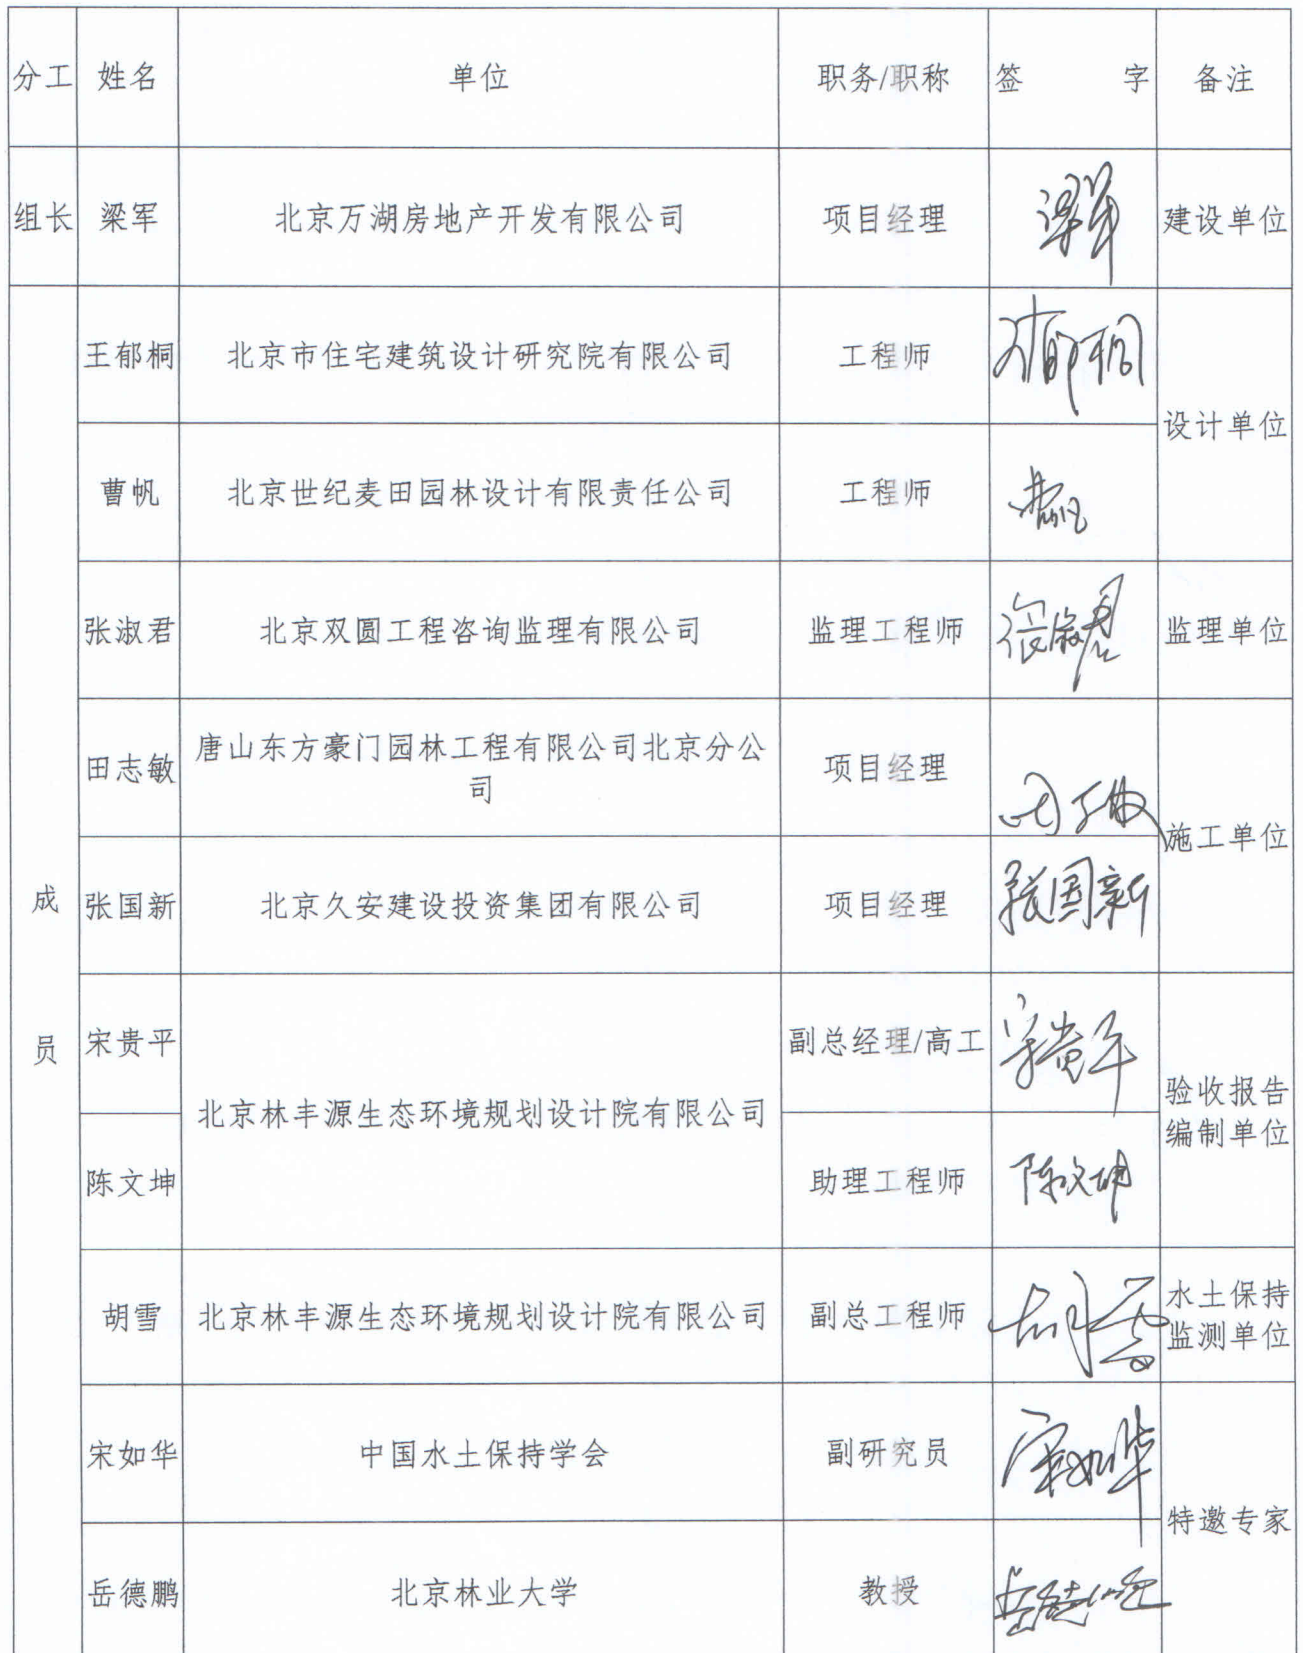 分工 姓名 单位 职务/职称 签 字 备注
组长 梁军 北京万湖房地产开发有限公司 项目经理 梁军 建设单位
成员
王郁桐 北京市住宅建筑设计研究院有限公司 工程师 王郁桐 设计单位
曹帆 北京世纪麦田园林设计有限责任公司 工程师 曹帆
张淑君 北京双圆工程咨询监理有限公司 监理工程师 张淑君 监理单位
田志敏 唐山东方豪门园林工程有限公司北京分公
司 项目经理 田志敏 施工单位
张国新 北京久安建设投资集团有限公司 项目经理 张国新
宋贵平 北京林丰源生态环境规划设计院有限公司 副总经理/高工 宋贵平 验收报告
编制单位
陈文坤 助理工程师 陈文坤
胡雪 北京林丰源生态环境规划设计院有限公司 副总工程师 胡雪 水土保持
监测单位
宋如华 中国水土保持学会 副研究员 宋如华 特邀专家
岳德鹏 北京林业大学 教授 岳德鹏